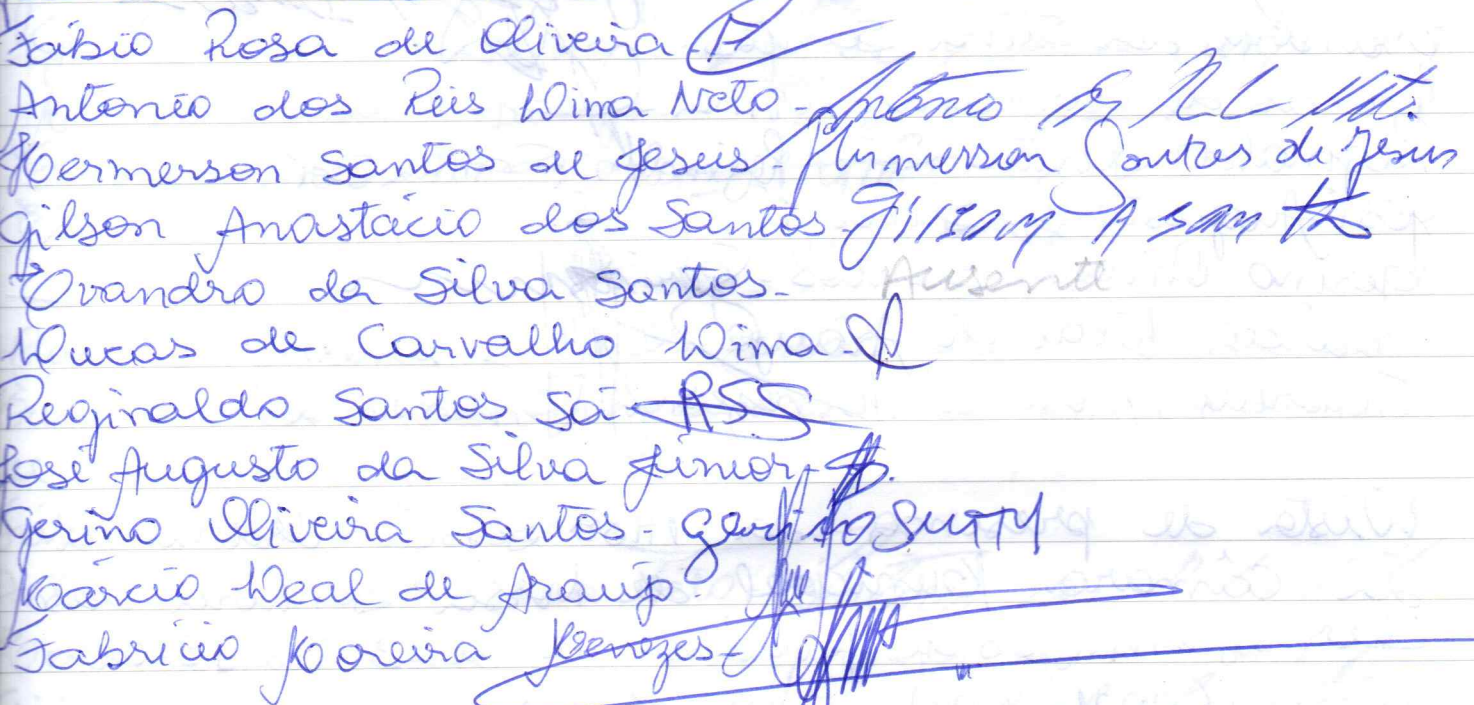 Fábio Rosa de Oliveira
Antonio dos Reis Lima Neto - Antônio
Hermerson Santos de Jesus - Hermerson Santos de Jesus
Gilson Anastácio dos Santos - Gilson A Santos
Evandro da Silva Santos - Ausente
Lucas de Carvalho Lima -
Reginaldo Santos Sá - RSS
José Augusto da Silva Júnior -
Gerino Oliveira Santos -
Márcio Leal de Araujo -
Fabrício Moreira Menezes -